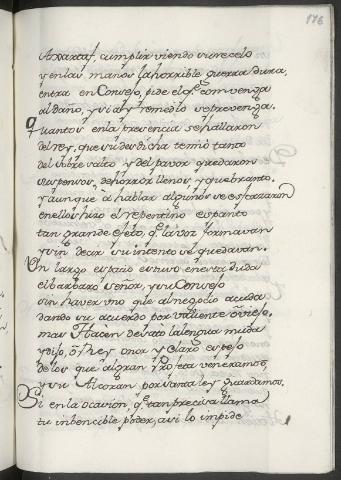 176
Axartaf, cumplir viendo su recelo
y en las manos la horrible guerra dura,
entra en Consejo, pide el q.e convenga
al daño, y vía y remedio se prevenga.
Quantos en la presencia se hallaron
del rey, que su desdicha temió tanto
del sobresalto y del pavor quedaron
suspensos, de horror llenos y quebranto.
y aunque a hablar algunos se esforzaron
en ellos hizo el repentino espanto
tan grande efeto, q.e la voz tornavan
y sin decir su intento se quedavan.
Un largo espacio estuvo en esta duda
el barbaro señor, y su Consejo
sin haver uno que al negocio acuda
dando su acuerdo por valiente o viejo,
mas Hacen desató la lengua muda
y dijo, ô Rey onor y claro espejo
de los que al gran Profeta veneramos,
y su Alcoran por santa ley guardamos.
Si en la ocasion, q.e tan precisa llama
tu inbencible poder, asi lo impide